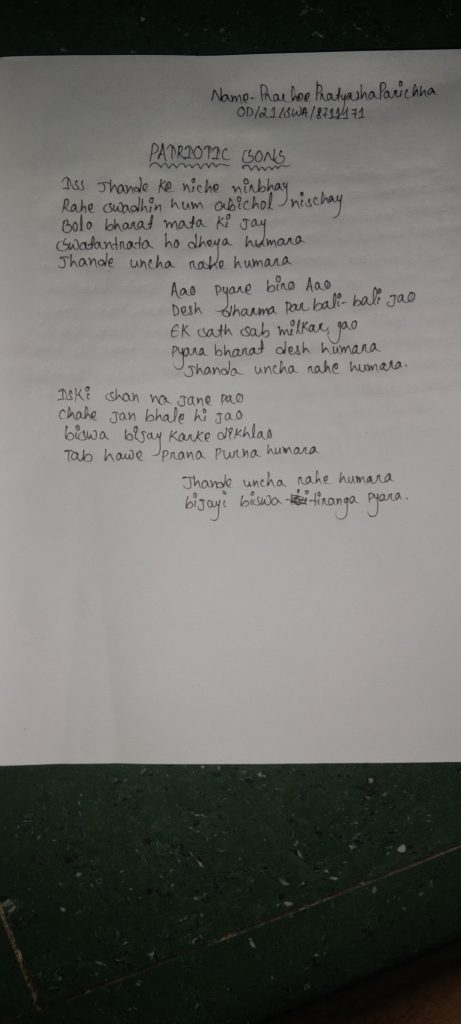 Name- Prachee Pratyasha Parichha
OD/21/SWA/8711171
PATRIOTIC SONG
Iss Jhande ke niche nirbhay
Rahe swadhin hum abichol nischay
Bolo bharat mata ki jay
Swatantrata ho dheya humara
Jhande uncha rahe humara
Aao pyare biro Aao
Desh dharma par bali-bali jao
Ek sath sab milkar gao
Pyara bharat desh humara
Jhanda uncha rahe humara.
Iski shan na jane pao
Chahe jan bhale hi jao
biswa bijay karke dikhlao
Tab hawe prana purna humara
Jhande uncha rahe humara
bijayi biswa tiranga pyara.